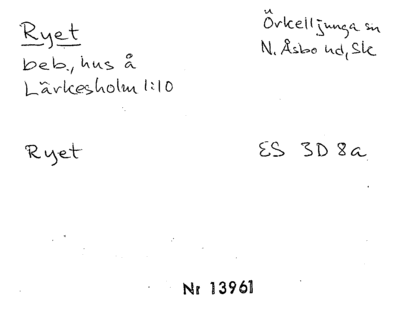 Ryet
beb., hus å
Lärkesholm 1:10
Örkelljunga sn
N. Åsbo hd, Sk
Ryet
ES 3D 8a
Nr 13961